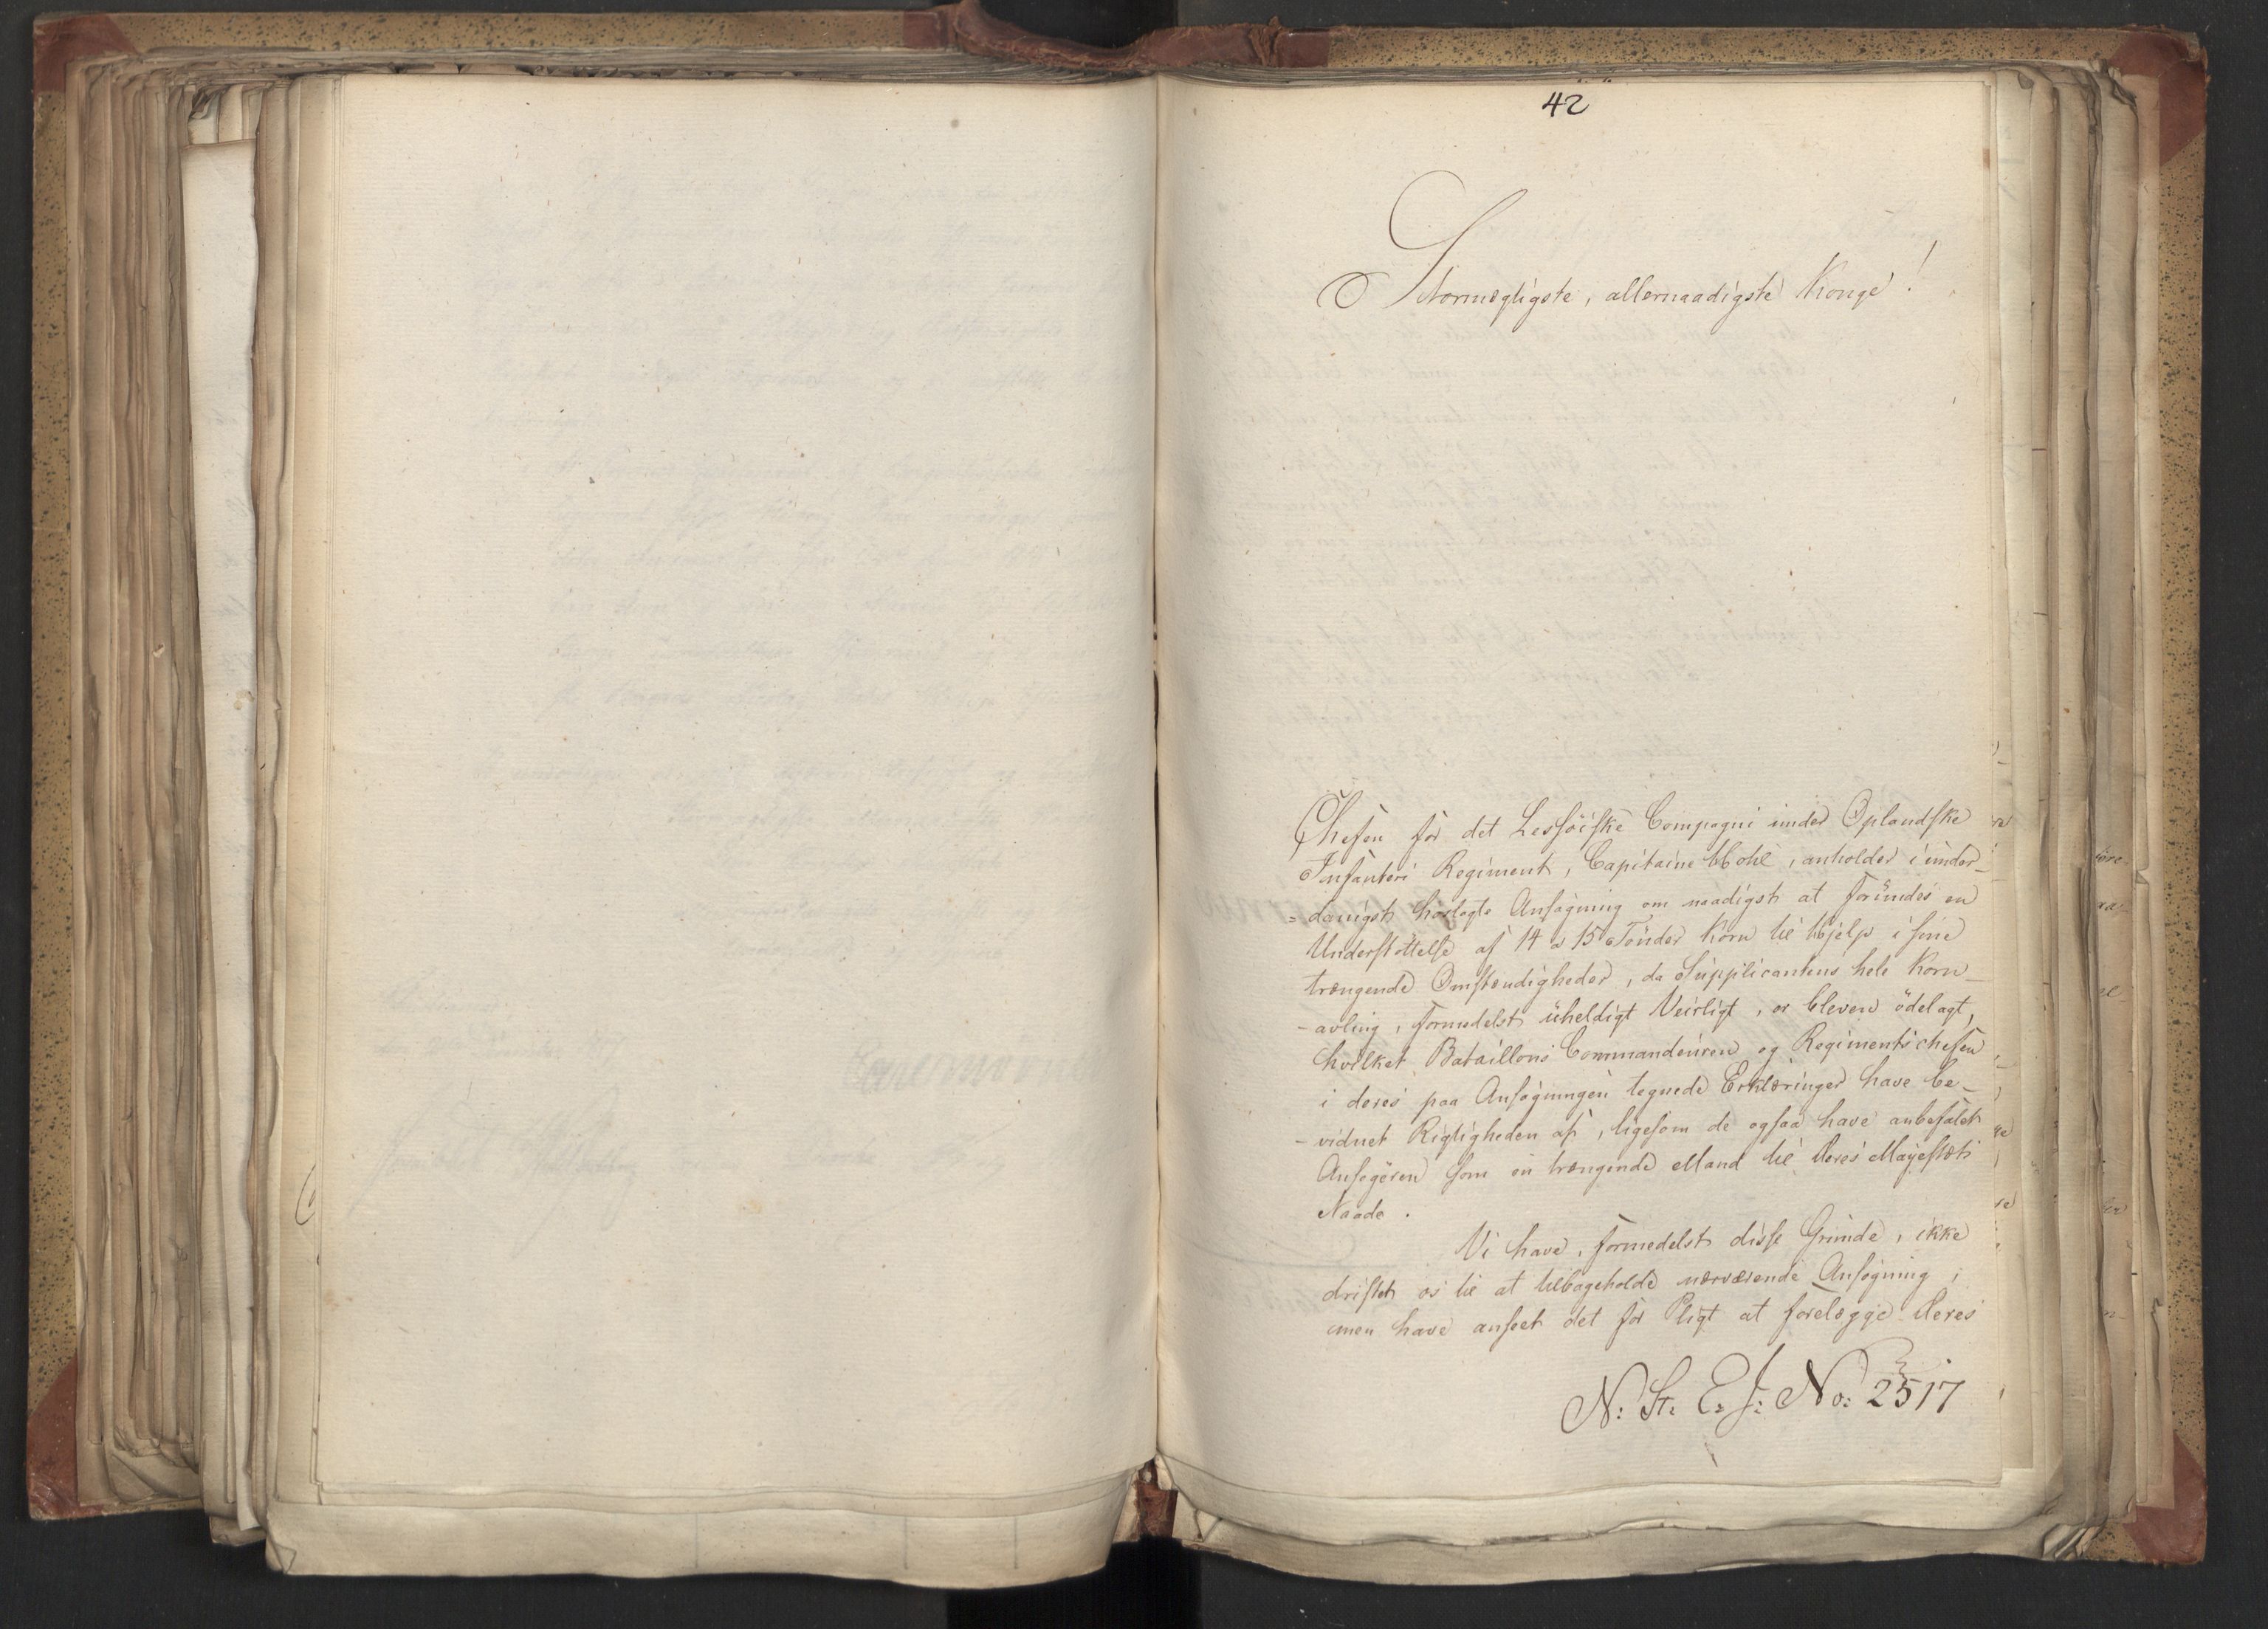 42
Stormegtigste, allernaadigste Konge!
Chefen for det Lessöiske Compagni under Oplandske
Infanteri Regiment, Capitaine Mohl, anholder i under-
=danigst hoslagte Ansøgning om naadigst at forundes en
Understöttelse af 14 a 15 Tönder Korn til Hjelp i sine
trængende Omstændigheder, da Supplicantens hele Korn-
-avling, formedelst uheldigt Veirligt, er bleven ödelagt,
hvilket Bataillons Commandeuren og Regimentschefen
i deres paa Ansøgningen tegnede Erklæringer have be-
-vidnet Rigtigheden af, ligesom de ogsaa have anbefalet
Ansøgeren som en trængende Mand til Deres Majestæts
Naade.
Vi have, formedelst disse Grunde, ikke
dristet os til at tilbageholde nærværende Ansøgning,
men have anseet det for Pligt at forelægge Deres
N: St: E: J: No: 2517